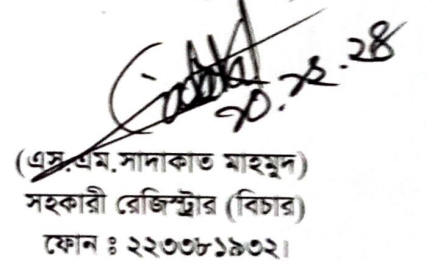 (এস.এম.সাদাকাত মাহমুদ)
সহকারী রেজিস্ট্রার (বিচার)
ফোন ঃ ২২৩৩৮১৯৩২।